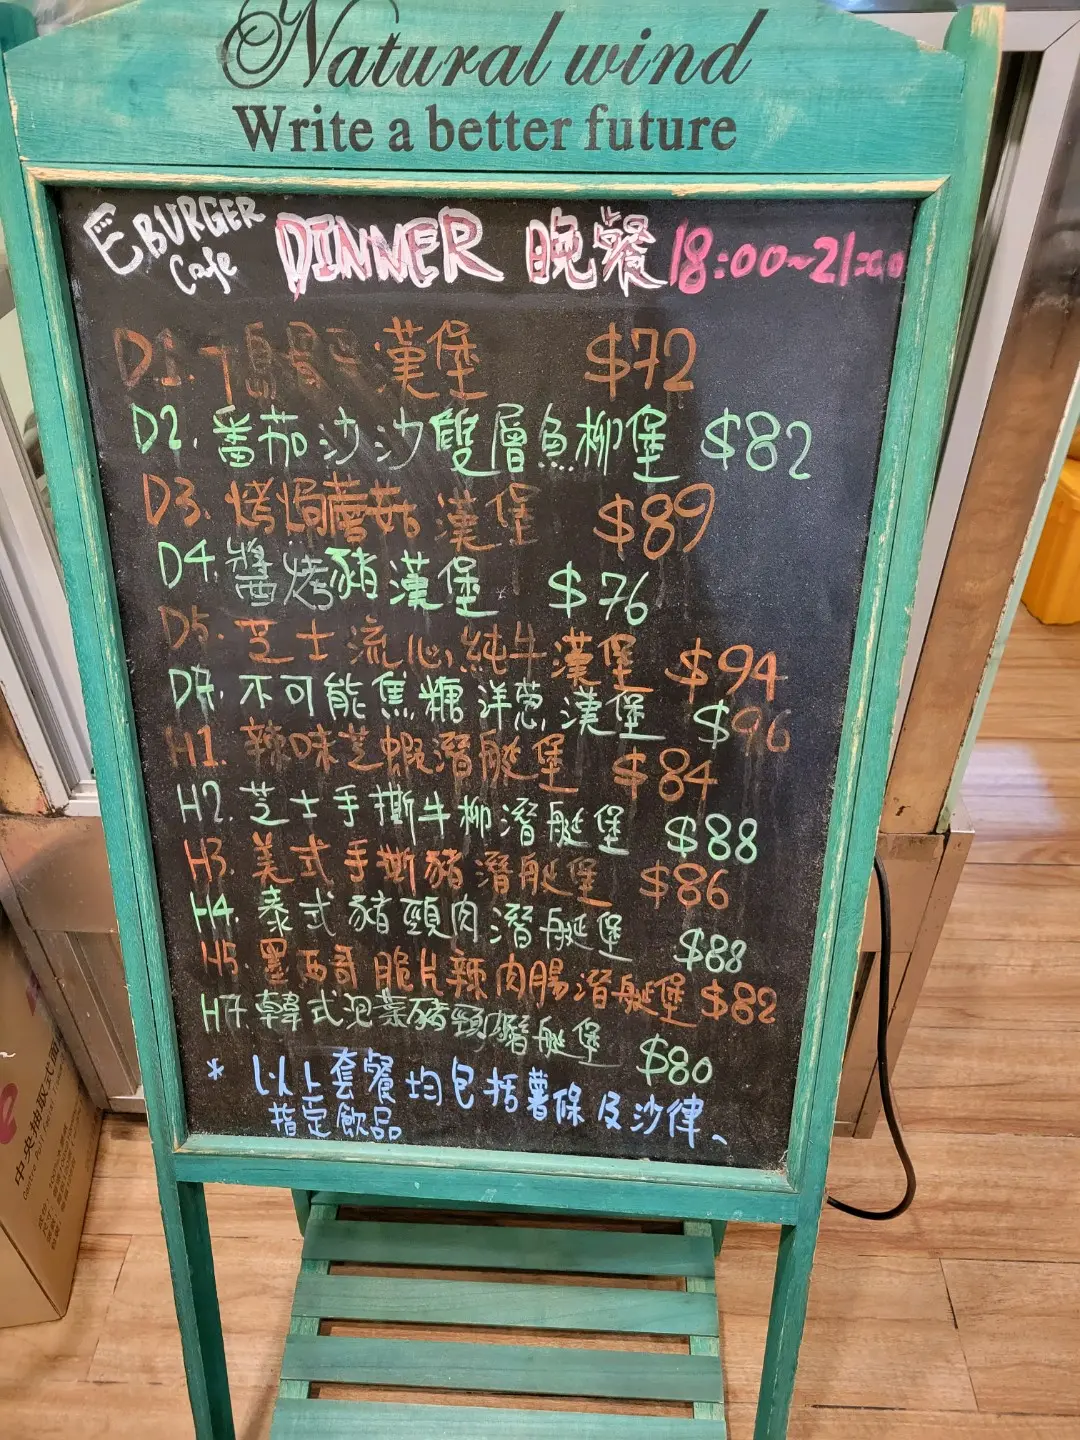 Natural wind
Write a better future
E BURGER Cafe DINNER 晚餐 18:00~21:00
D1. 漢堡 $72
D2. 番茄沙沙雙層魚柳堡 $82
D3. 烤焗蘑菇漢堡 $89
D4. 醬烤豬漢堡 $76
D5. 芝士流心純牛漢堡 $94
D7. 不可能焦糖洋蔥漢堡 $96
H1. 辣味芝蝦潛艇堡 $84
H2. 芝士手撕牛柳潛艇堡 $88
H3. 美式手撕豬潛艇堡 $86
H4. 泰式豬頸肉潛艇堡 $88
H5. 墨西哥脆片辣肉腸潛艇堡 $82
H7. 韓式泡菜豬頸潛艇堡 $80
* 以上套餐均包括薯條及沙律、
指定飲品
中央抽取式面